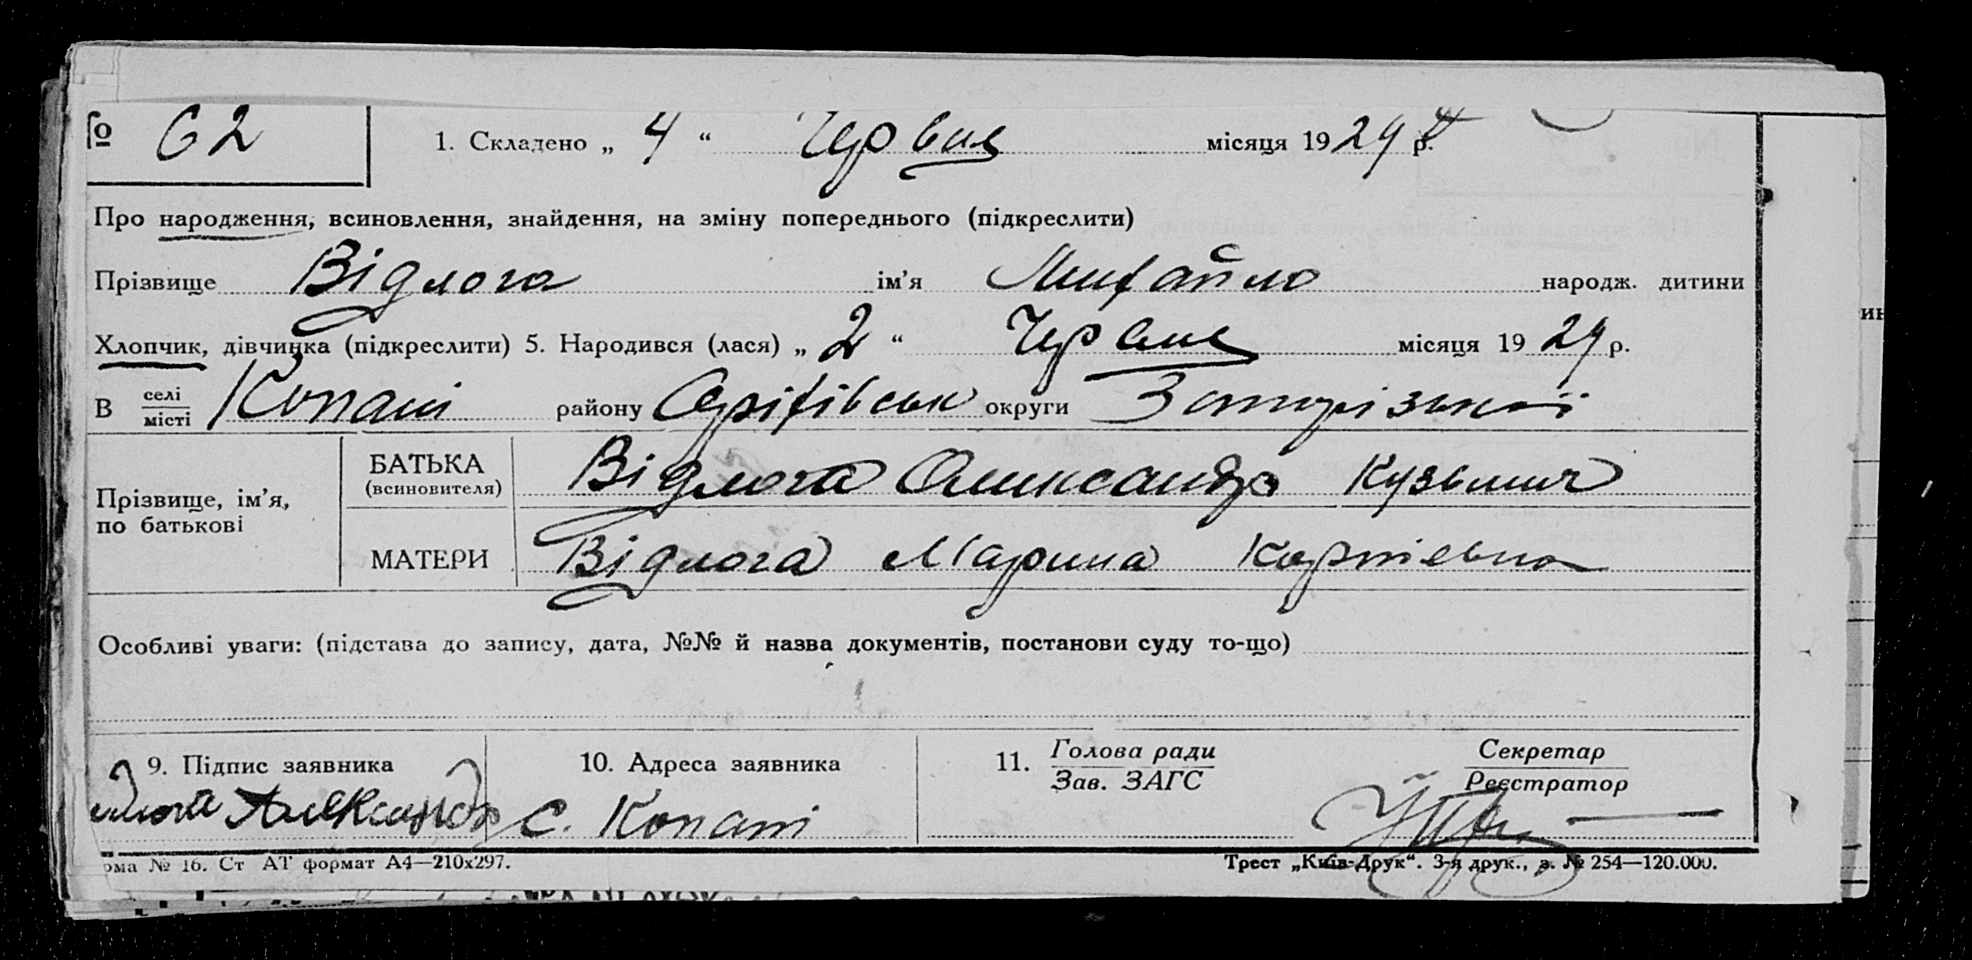 № 62 1. Складено „ 4 “ Червня місяця 1929 р.
Про народження, всиновлення, знайдення, на зміну попереднього (підкреслити)
Прізвище Відлога ім’я Михайло народж. дитини
Хлопчик, дівчинка (підкреслити) 5. Народився (лася) „ 2 “ Червня місяця 1929 р.
В селі місті Копані району Оріхівськ округи Запорізької
Прізвище, ім’я, по батькові
БАТЬКА (всиновителя) Відлога Олександр Кузьмич
МАТЕРИ Відлога Марина Карпіевна
Особливі уваги: (підстава до запису, дата, №№ й назва документів, постанови суду то-що)
9. Підпис заявника 10. Адреса заявника 11. Голова ради Секретар
Зав. ЗАГС Реєстратор
длога Александр с. Копані
рма № 16. Ст АТ формат А4—210х297. Трест „Київ-Друк“. 3-я друк., з. № 254—120.000.